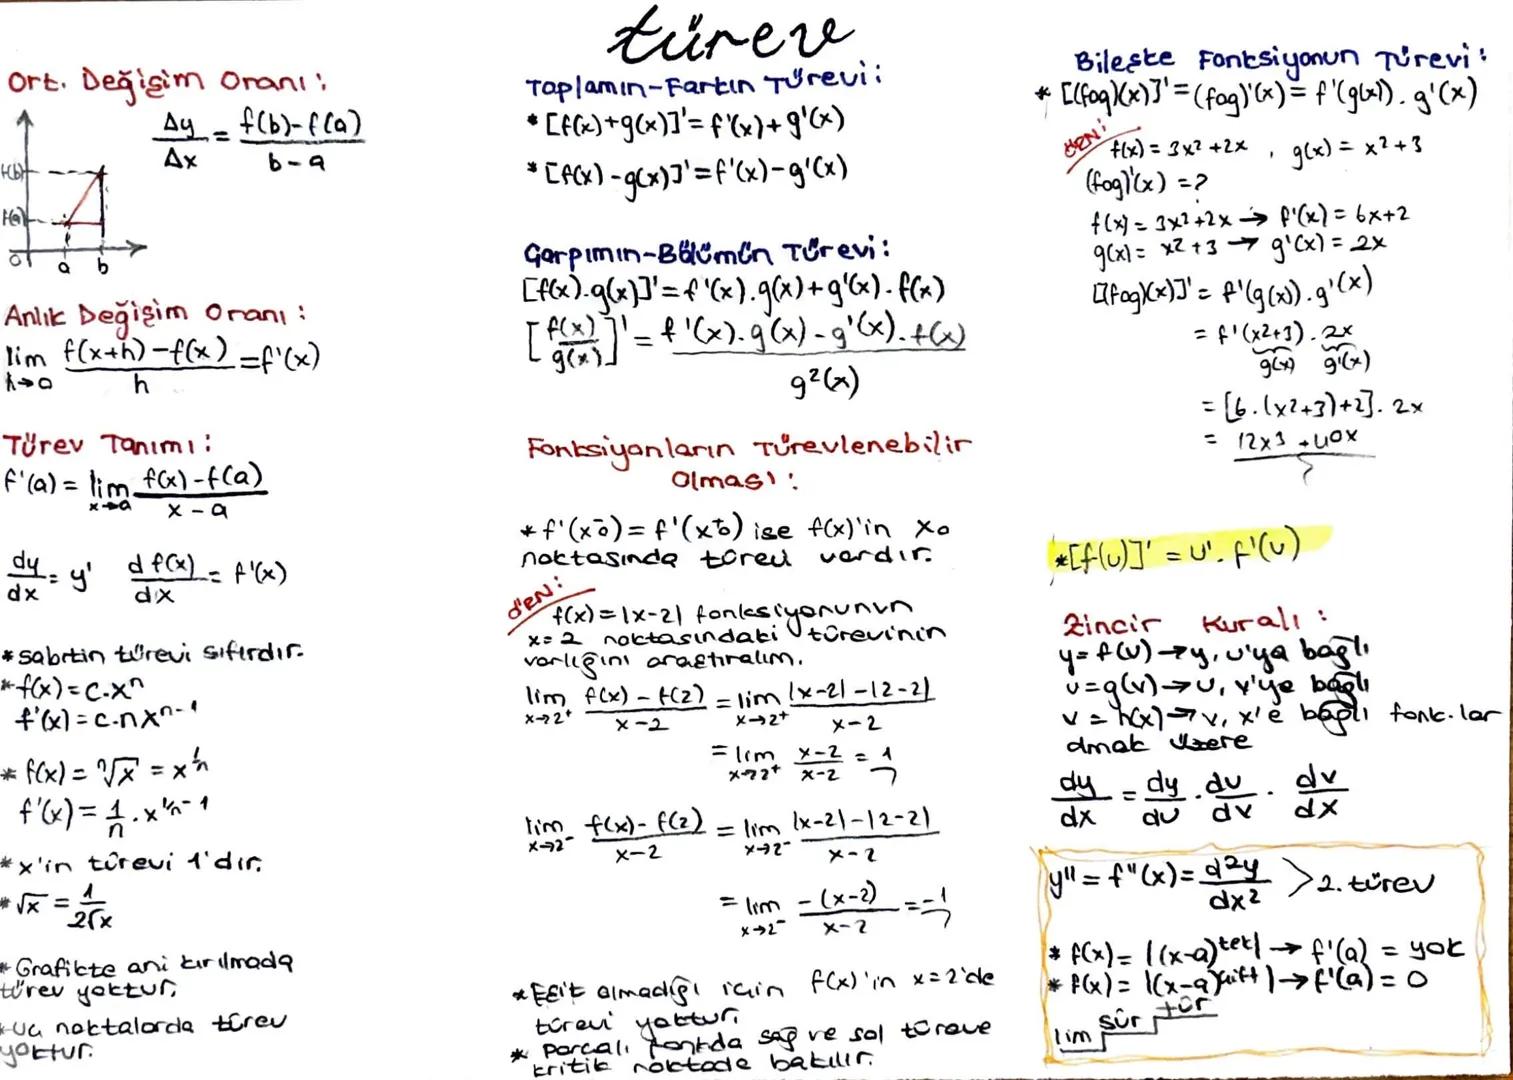 türev
Ort. Değişim Oranı:
Δy/Δx = f(b)-f(a)/b-a
f(b)
f(a)
0 a b
Anlık Değişim Oranı:
lim h→0 f(x+h)-f(x)/h = f'(x)
Türev Tanımı:
f'(a) = lim x→a f(x)-f(a)/x-a
dy/dx = y' df(x)/dx = f'(x)
*sabitin türevi sıfırdır.
*f(x)=c.xⁿ
f'(x)=c.nxⁿ⁻¹
* f(x) = ⁿ√x = x^1/n
f'(x) = 1/n . x^1/n-1
*x'in türevi 1'dir.
*√x = 1/2√x
*Grafikte ani kırılmada
türev yoktur.
*Uç noktalarda türev
yoktur.
Toplamın-Farkın Türevi:
*[f(x)+g(x)]'=f'(x)+g'(x)
*[f(x)-g(x)]'=f'(x)-g'(x)
Çarpımın-Bölümün Türevi:
[f(x).g(x)]'=f'(x).g(x)+g'(x).f(x)
[f(x)/g(x)]' = f'(x).g(x)-g'(x).f(x)/g²(x)
Fonksiyonların Türevlenebilir
Olması:
*f'(x₀⁻)=f'(x₀⁺) ise f(x)'in x₀
noktasında türevi vardır.
ÖRN:
f(x)=|x-2| fonksiyonunun
x=2 noktasındaki türevinin
varlığını araştıralım.
lim x→2⁺ f(x)-f(2)/x-2 = lim x→2⁺ |x-2|-|2-2|/x-2
= lim x→2⁺ x-2/x-2 = 1
lim x→2⁻ f(x)-f(2)/x-2 = lim x→2⁻ |x-2|-|2-2|/x-2
= lim x→2⁻ -(x-2)/x-2 = -1
*Eşit olmadığı için f(x)'in x=2'de
türevi yoktur.
* Parçalı fonkda sağ ve sol türeve
kritik noktada bakılır.
Bileşke Fonksiyonun Türevi:
* [(fog)(x)]'=(fog)'(x)=f'(g(x)).g'(x)
ÖRN:
f(x)=3x²+2x , g(x)=x²+3
(fog)'(x) =?
f(x)=3x²+2x → f'(x)=6x+2
g(x)= x²+3 → g'(x)=2x
[(fog)(x)]'= f'(g(x)).g'(x)
= f'(x²+3).2x
g(x) g'(x)
=[6.(x²+3)+2].2x
= 12x³+40x
*[f(u)]' = u'.f'(u)
Zincir Kuralı:
y=f(u)→y, u'ya bağlı
u=g(v)→u, v'ye bağlı
v=h(x)→v, x'e bağlı fonk.lar
olmak üzere
dy/dx = dy/du . du/dv . dv/dx
y''=f''(x)=d²y/dx² > 2. türev
* f(x)= |(x-a)^tek| → f'(a) = yok
* f(x)= |(x-a)^çift| → f'(a) = 0
lim sür tür